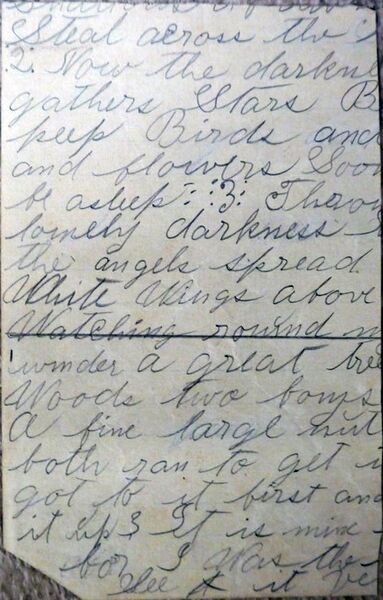 Steal across the
2. Now the darkne
gathers Stars B
peep Birds and
and flowers Soon
be asleep: 3: Throu
lonely darkness
the angels spread
White Wings above
Watching round m
under a great tree
Woods two boys
A fine large nut
both ran to get i
got to it first and
it up 3 It is mine
for I Was the
See it